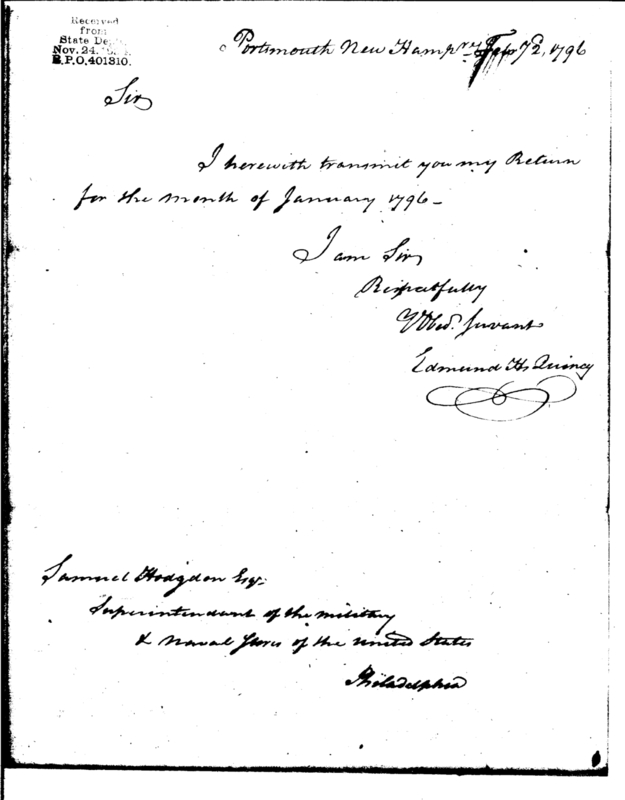 Received
from
State Dept.
Nov. 24.
B.P.O. 401310.
Portsmouth New Hampr 2d, 1796
Sir
I herewith transmit you my Return
for the month of January 1796 -
I am Sir
Respectfully
Y Obed. Servant
Edmund H. Quincy
Samuel Hodgdon Esqr.
Superintendant of the military
& Naval Stores of the United States
Philadelphia